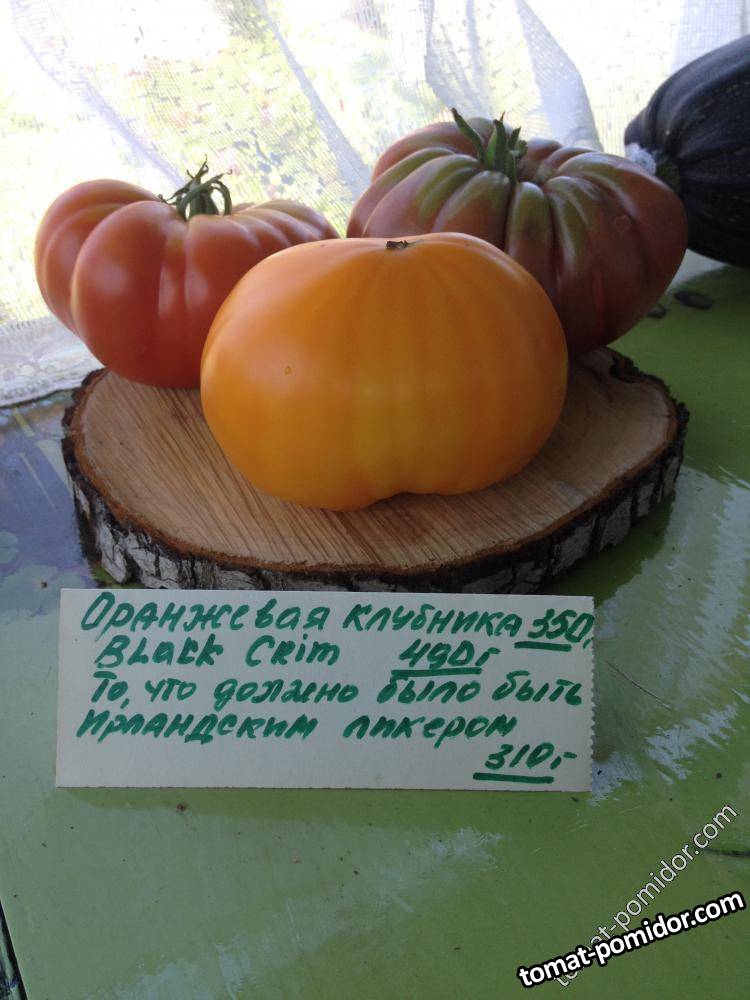 Оранжевая клубника 350г
Black Crim 490г
То, что должно было быть
Ирландским ликером
310г
tomat-pomidor.com
tomat-pomidor.com